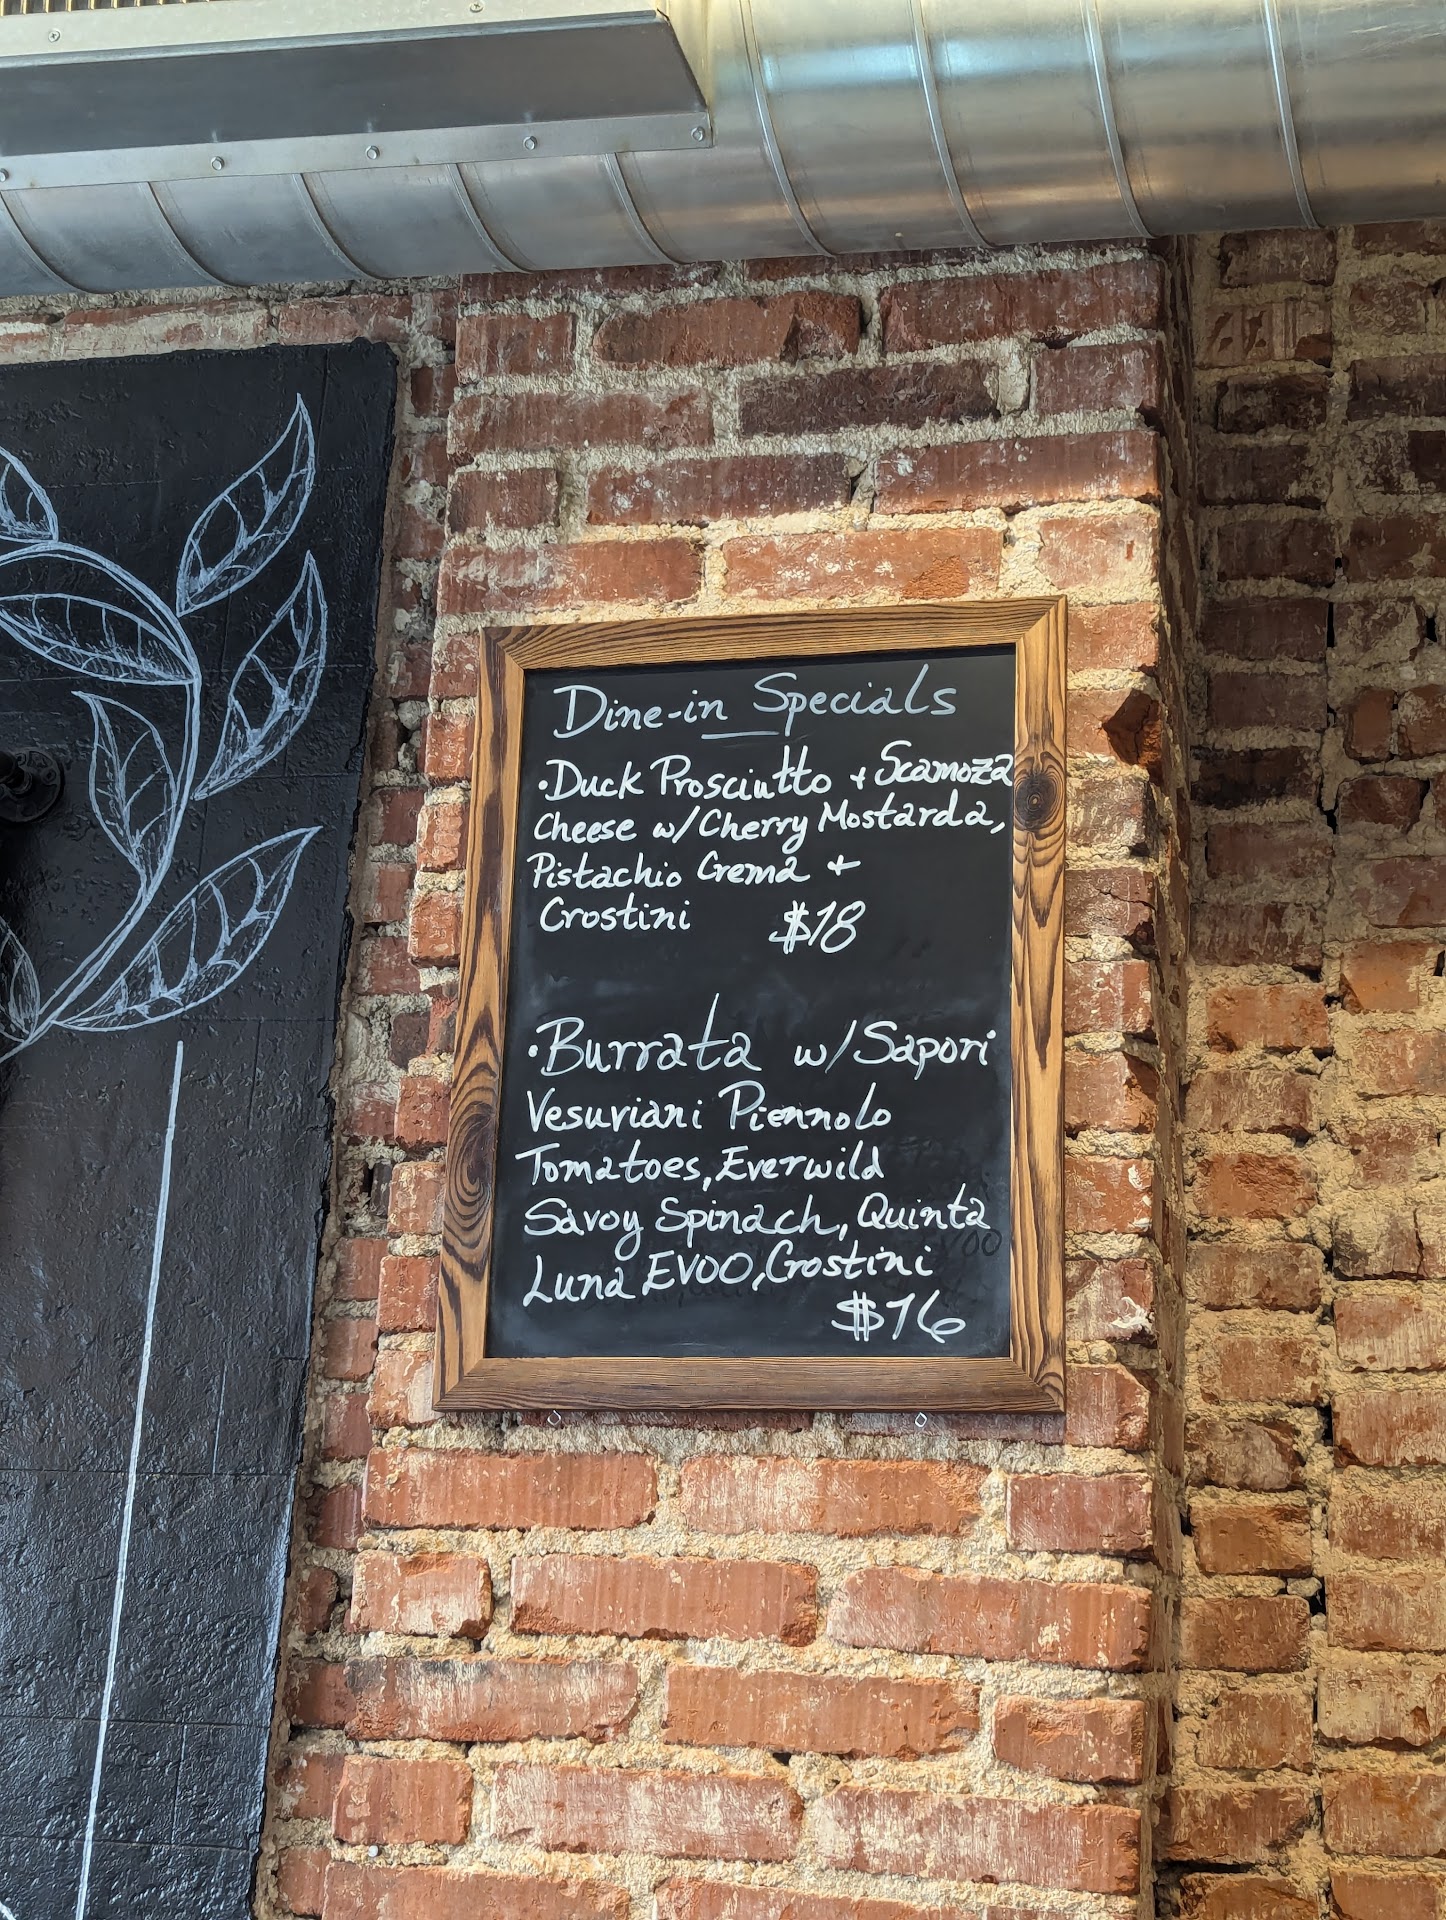 Dine-in Specials
•Duck Prosciutto + Scamoza
Cheese w/Cherry Mostarda,
Pistachio Crema +
Crostini $18
•Burrata w/Sapori
Vesuviani Piennolo
Tomatoes, Everwild
Savoy Spinach, Quinta
Luna EVOO, Crostini
$16